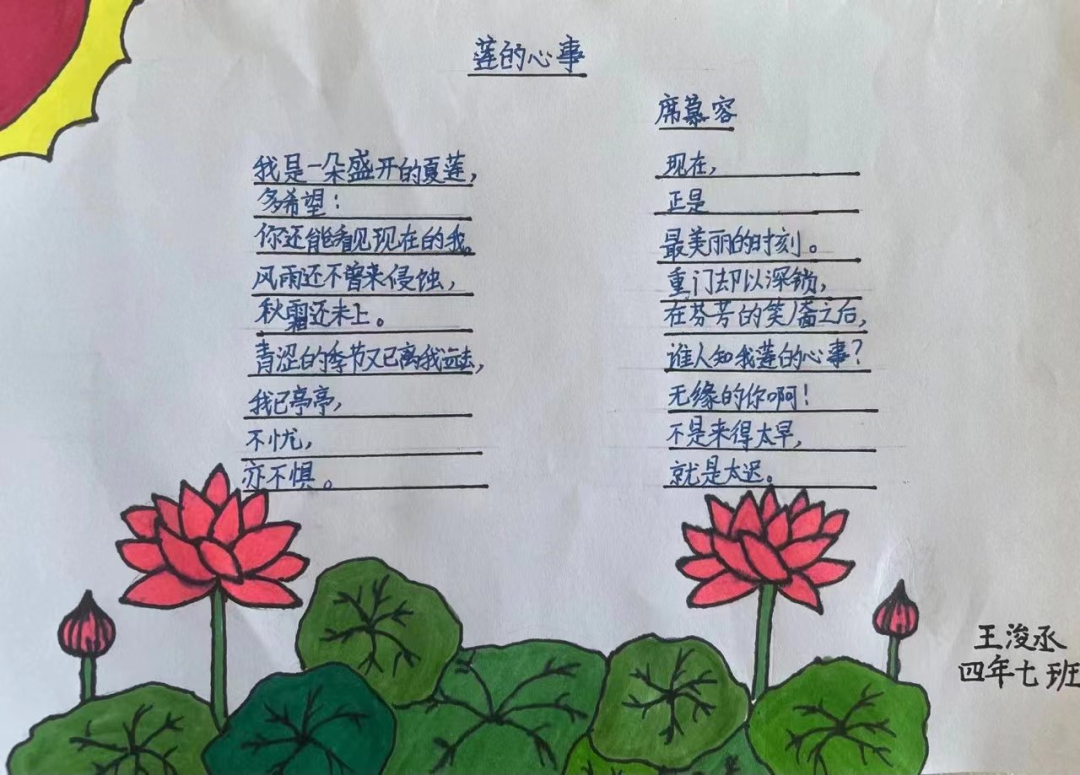 莲的心事
席慕容
我是一朵盛开的夏莲,
多希望:
你还能看见现在的我。
风雨还不曾来侵蚀,
秋霜还未上。
青涩的季节又已离我远去,
我已亭亭,
不忧,
亦不惧。
现在,
正是
最美丽的时刻。
重门却以深锁,
在芬芳的笑靥之后,
谁人知我莲的心事?
无缘的你啊!
不是来得太早,
就是太迟。
王浚丞
四年七班